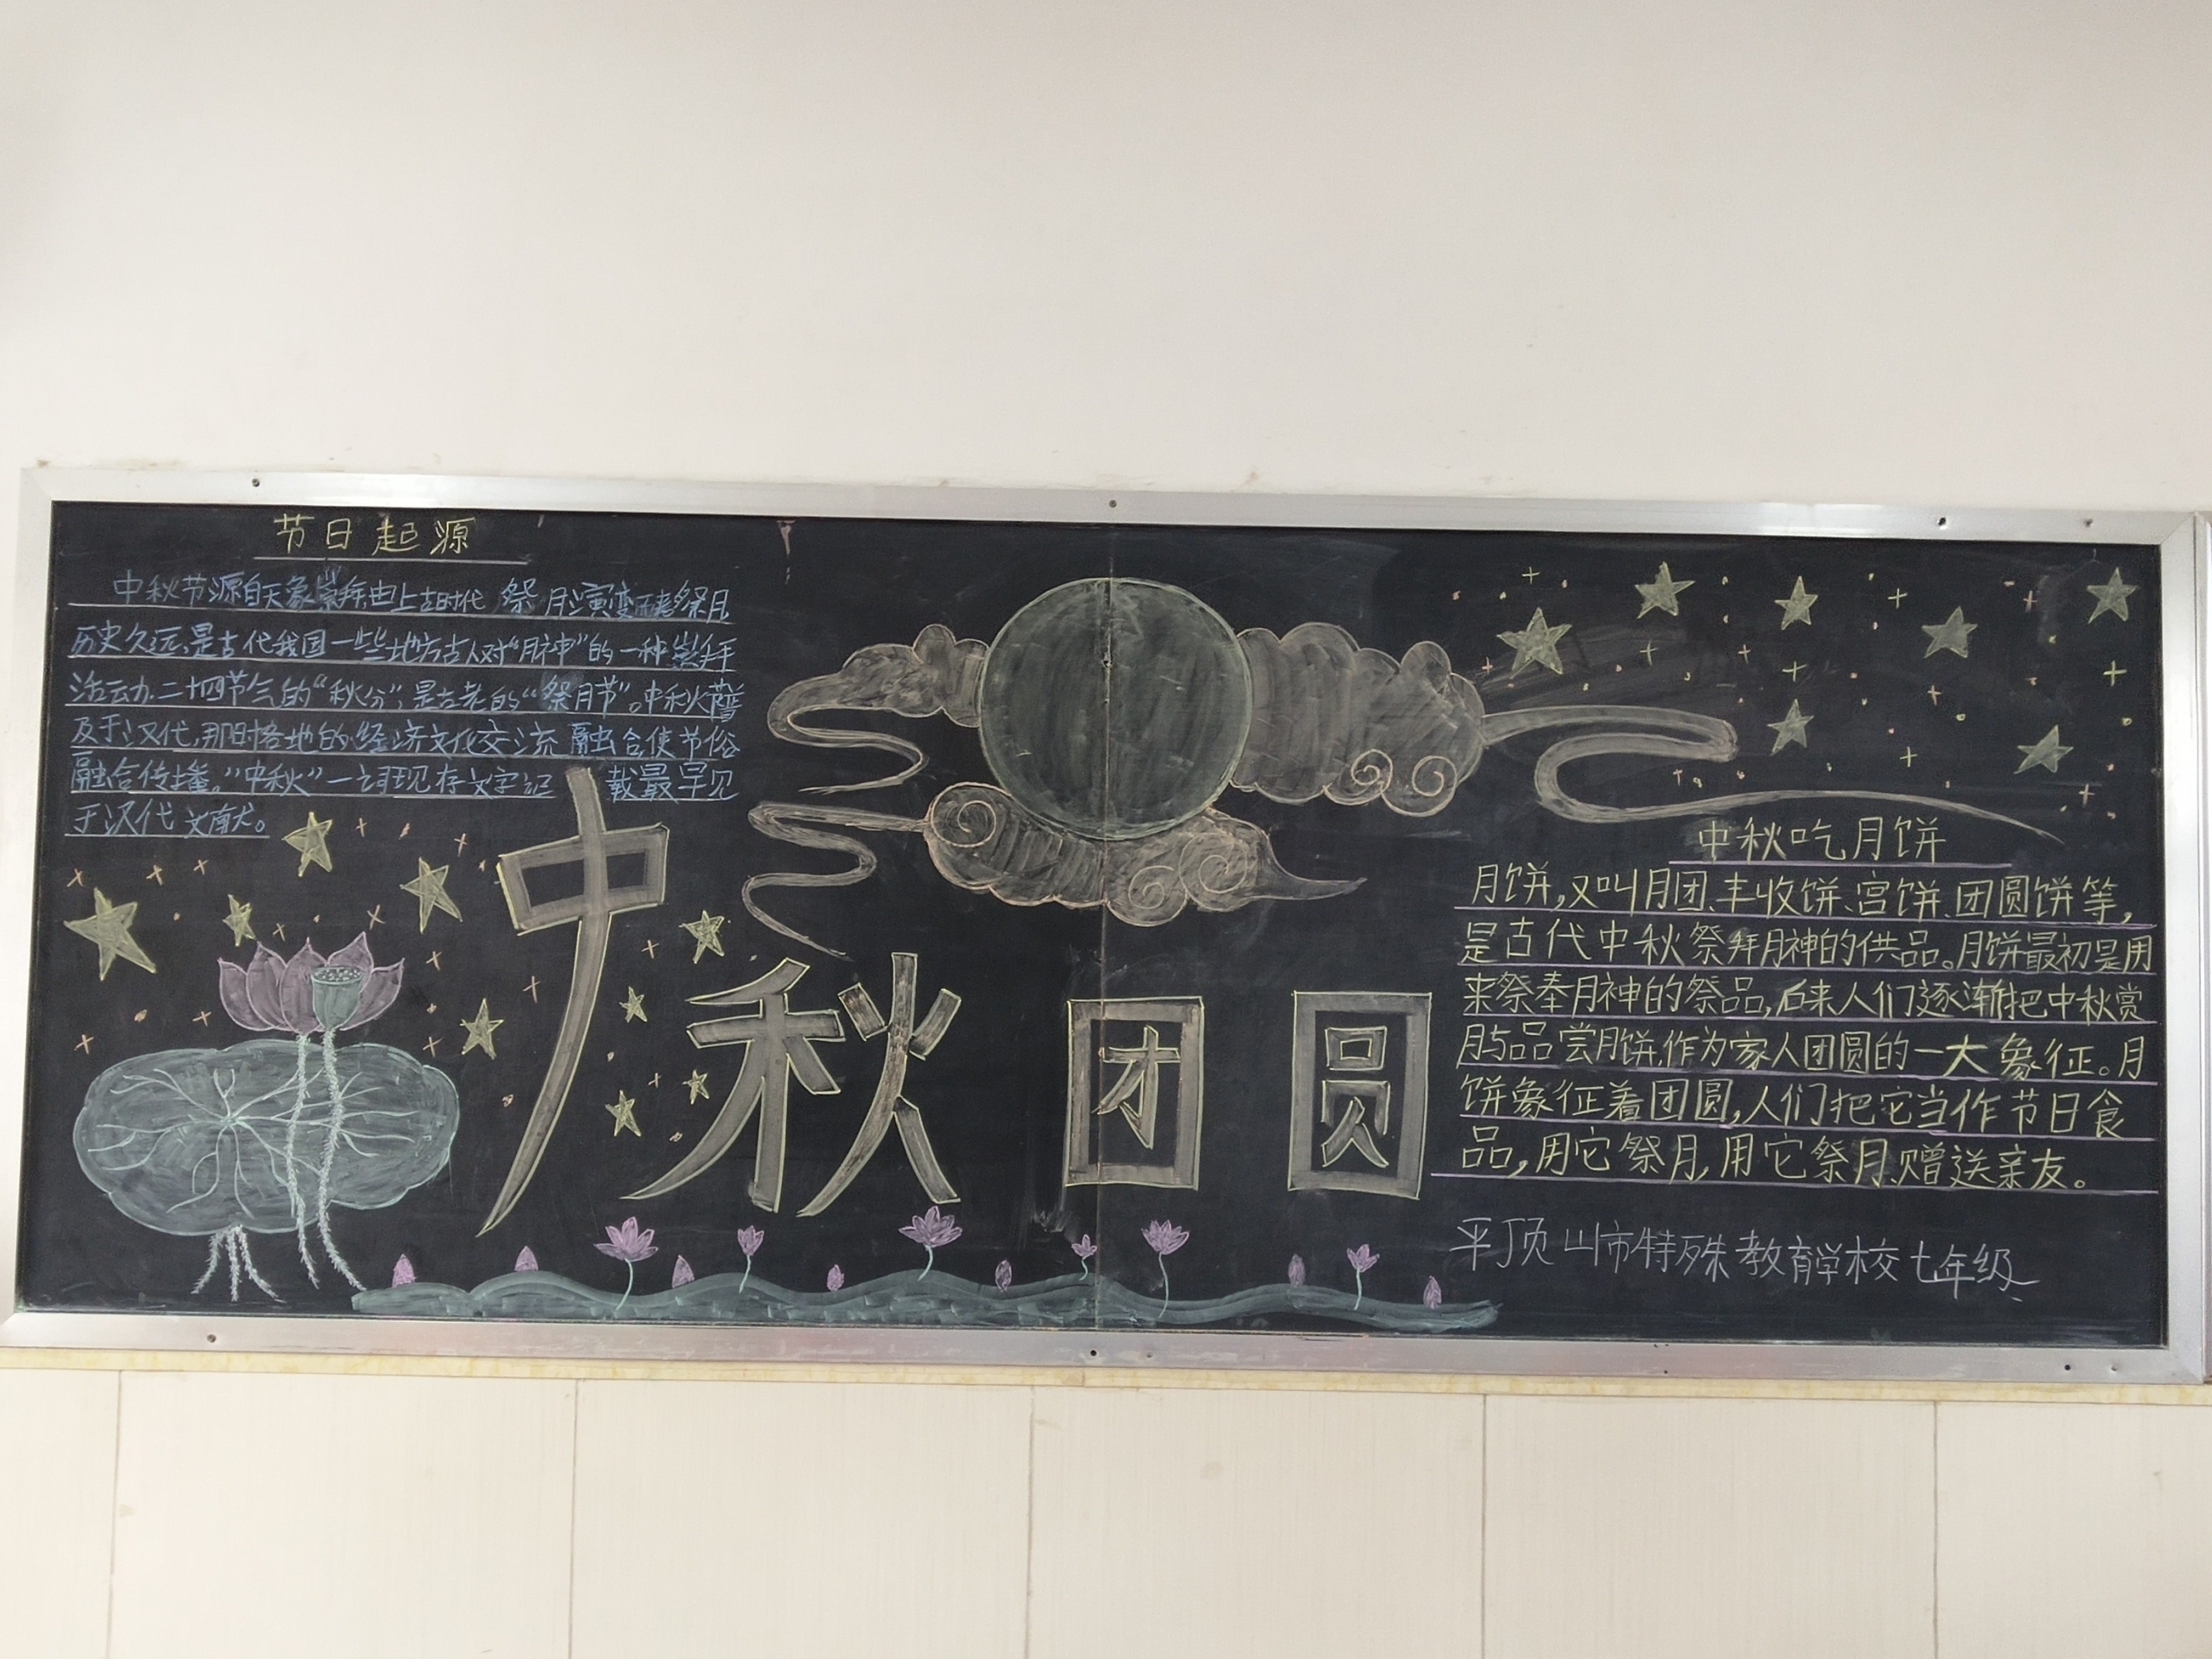 节日起源
中秋节源自天象崇拜,由上古时代 祭月演变而来。祭月
历史久远,是古代我国一些地方古人对“月神”的一种崇拜
活动,二十四节气的“秋分”,是古老的“祭月节”。中秋节普
及于汉代,那时各地的经济文化交流 融合使节俗
融合传播。“中秋”一词现存文字记 载最早见
于汉代文献。
中秋团圆
中秋吃月饼
月饼,又叫月团、丰收饼、宫饼、团圆饼等,
是古代中秋祭拜月神的供品。月饼最初是用
来祭奉月神的祭品,后来人们逐渐把中秋赏
月与品尝月饼,作为家人团圆的一大象征。月
饼象征着团圆,人们把它当作节日食
品,用它祭月,用它祭月、赠送亲友。
平顶山市特殊教育学校七年级